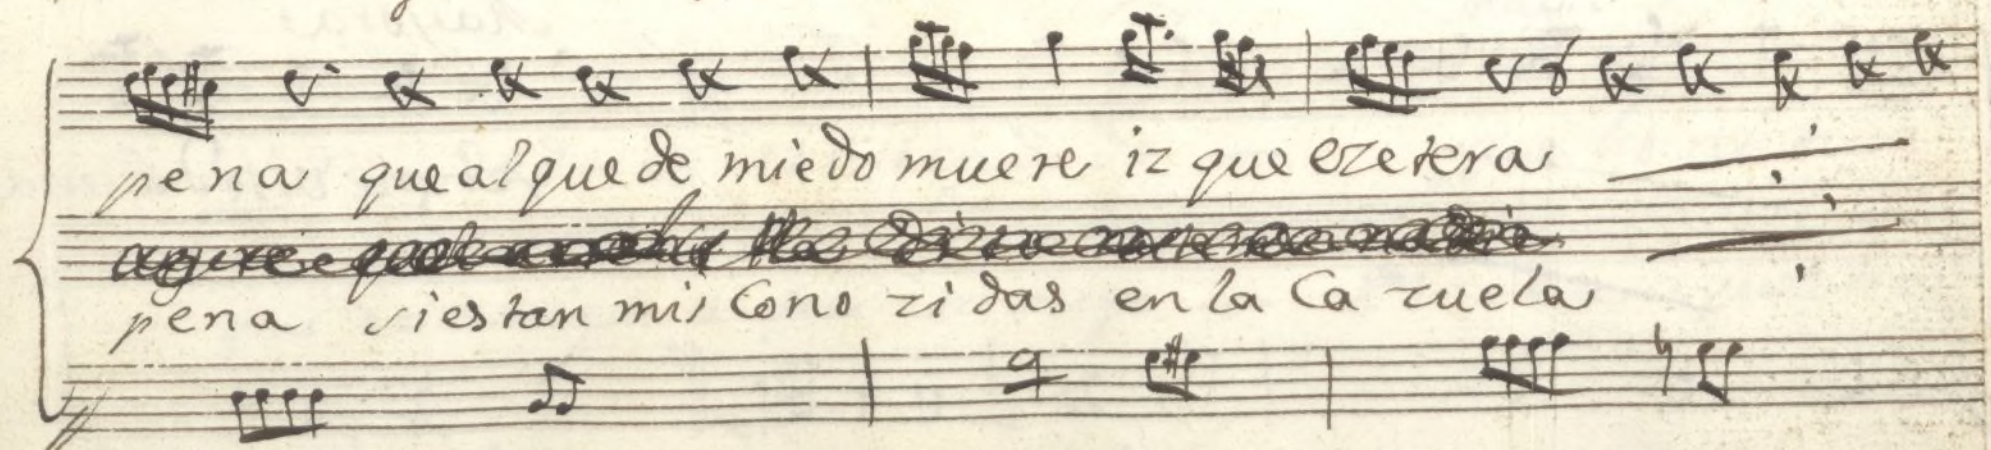 pena que al que de miedo muere iz que ezetera
pena si estan mis Cono zi das en la Ca zuela